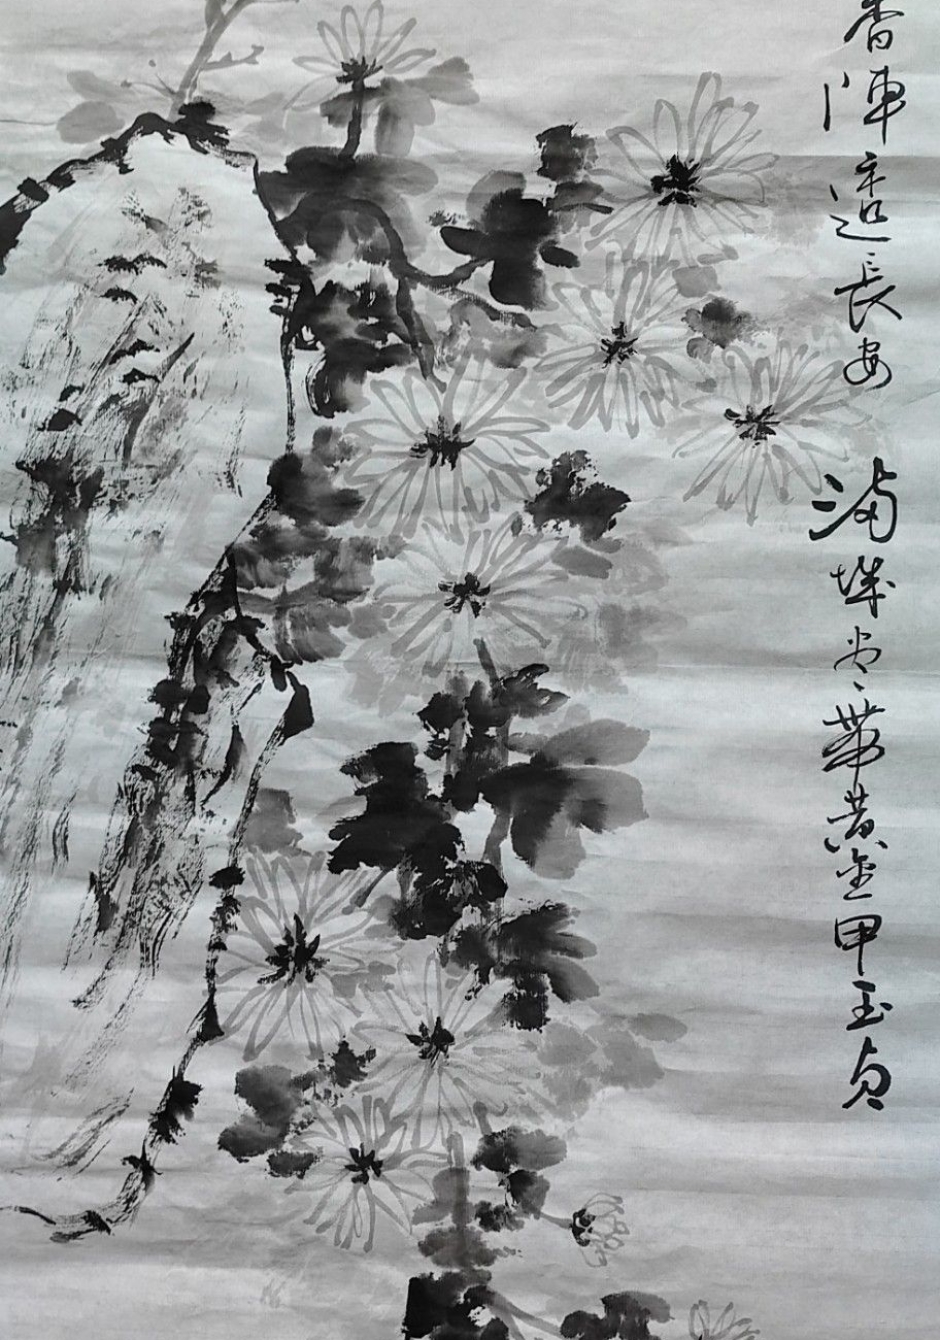 香陣透長安满城尽帶黄金甲玉贞